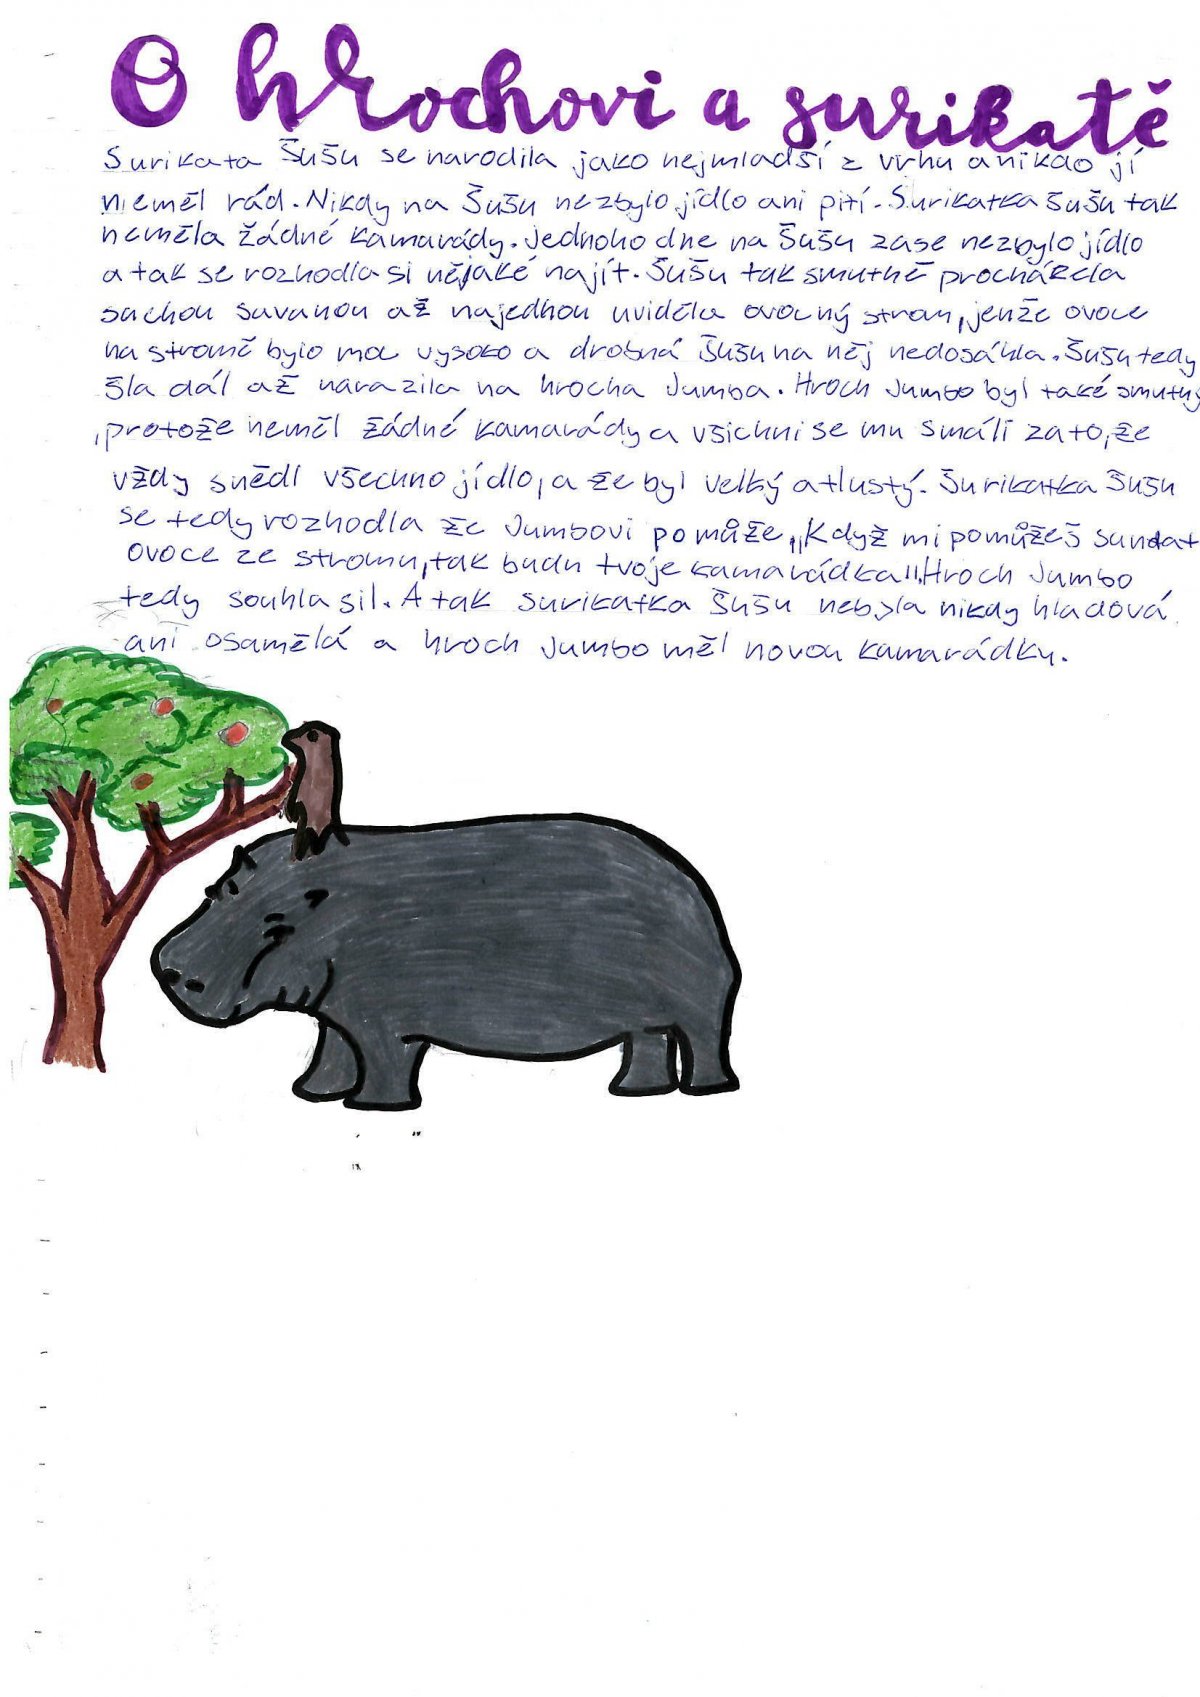 O hrochovi a surikatě
Surikata Šušu se narodila jako nejmladší z vrhu a nikdo jí
neměl rád. Nikdy na Šušu nezbylo jídlo ani pití. Surikatka Šušu tak
neměla žádné kamarády. Jednoho dne na Šušu zase nezbylo jídlo
a tak se rozhodla si nějaké najít. Šušu tak smutně procházela
suchou savanou až najednou uviděla ovocný strom, jenže ovoce
na stromě bylo moc vysoko a drobná Šušu na něj nedosáhla. Šušu tedy
šla dál až narazila na hrocha Jumba. Hroch Jumbo byl také smutný
, protože neměl žádné kamarády a všichni se mu smáli za to, že
vždy snědl všechno jídlo, a že byl velký a tlustý. Surikatka Šušu
se tedy rozhodla že Jumbovi pomůže. „Když mi pomůžeš sundat
ovoce ze stromu, tak budu tvoje kamarádka". Hroch Jumbo
tedy souhlasil. A tak surikatka Šušu nebyla nikdy hladová
ani osamělá a hroch Jumbo měl novou kamarádky.